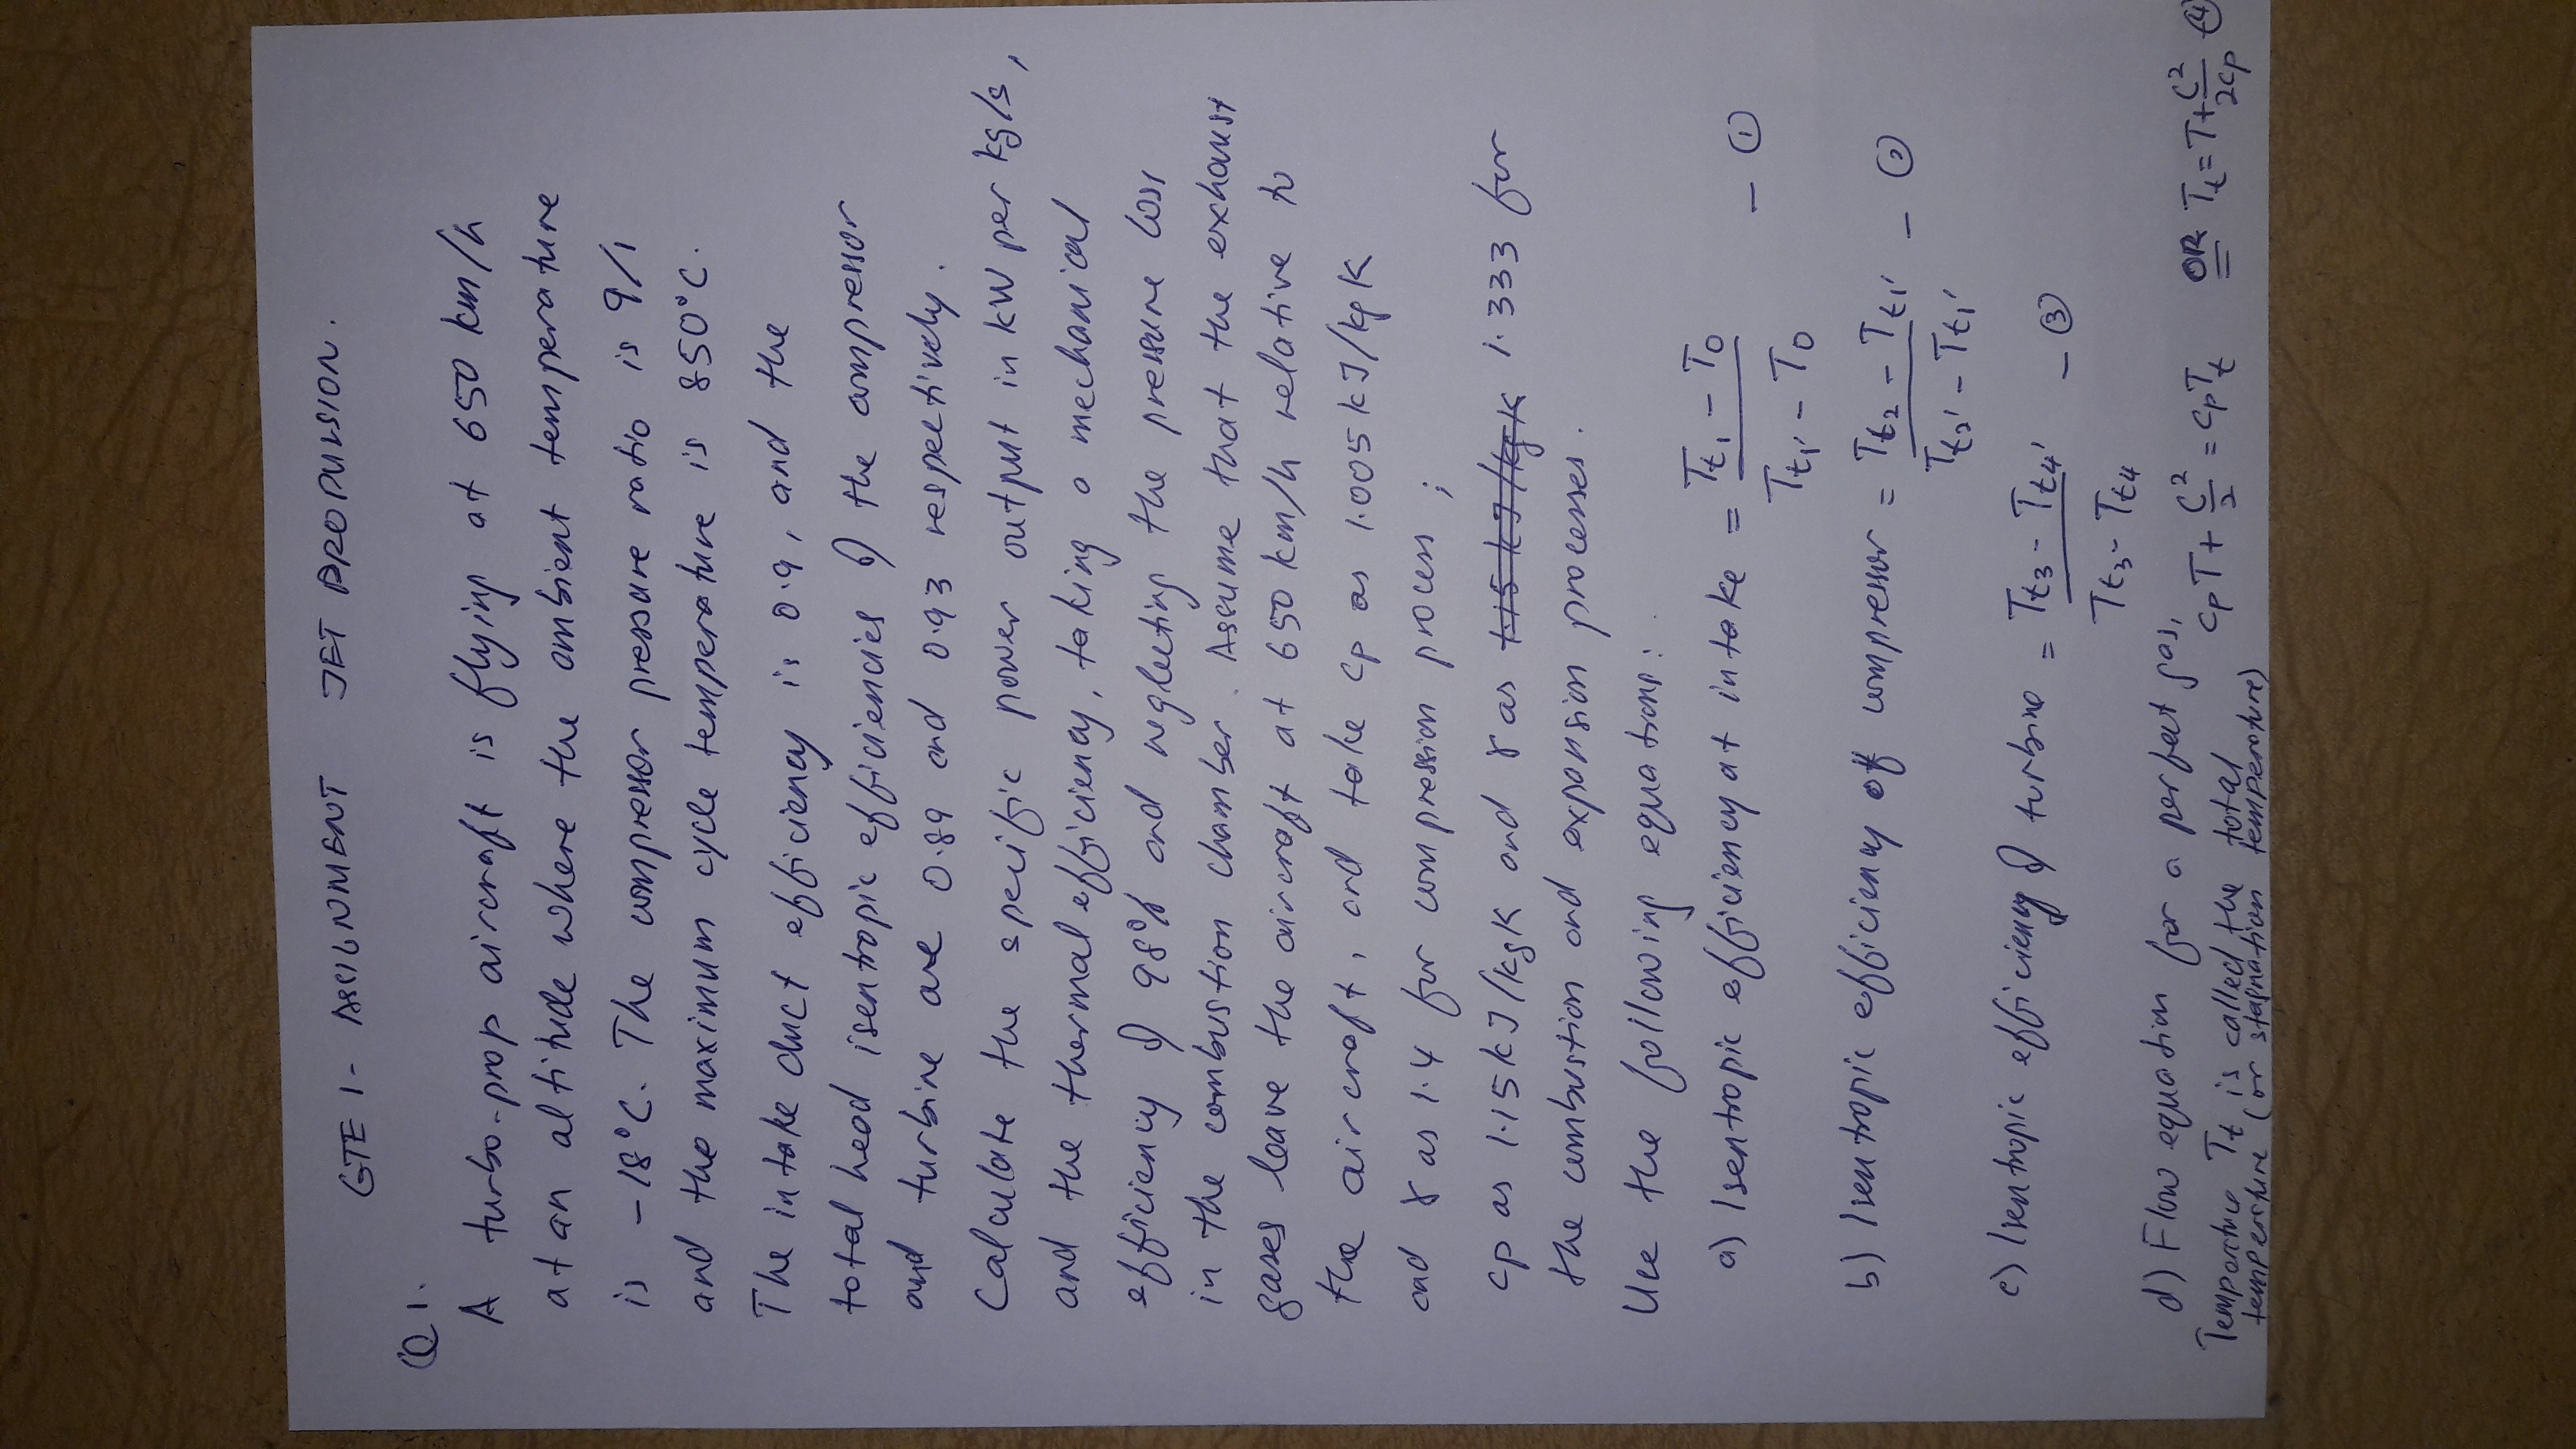 GTE 1 - ASSIGNMENT JET PROPULSION.
Q1.
A turbo-prop aircraft is flying at 650 km/h
at an altitude where the ambient temperature
is -18°C. The compressor pressure ratio is 9/1
and the maximum cycle temperature is 850°C.
The intake duct efficiency is 0.9, and the
total head isentropic efficiencies of the compressor
and turbine are 0.89 and 0.93 respectively.
Calculate the specific power output in kW per kg/s,
and the thermal efficiency, taking a mechanical
efficiency of 98% and neglecting the pressure loss
in the combustion chamber. Assume that the exhaust
gases leave the aircraft at 650 km/h relative to
the aircraft, and take cp as 1.005 kJ/kg K
and γ as 1.4 for compression process;
cp as 1.15 kJ/kg K and γ as 1.15 kJ/kg K 1.333 for
the combustion and expansion processes.
Use the following equations:
a) Isentropic efficiency at intake = (Tt1 - T0) / (Tt1' - T0) - ①
b) Isentropic efficiency of compressor = (Tt2 - Tt1') / (Tt2' - Tt1') - ②
c) Isentropic efficiency of turbine = (Tt3 - Tt4') / (Tt3 - Tt4) - ③
d) Flow equation for a perfect gas,
cpT + C²/2 = cpTt OR Tt = T + C²/2cp - ④
Temperature Tt is called the total
temperature (or stagnation temperature)